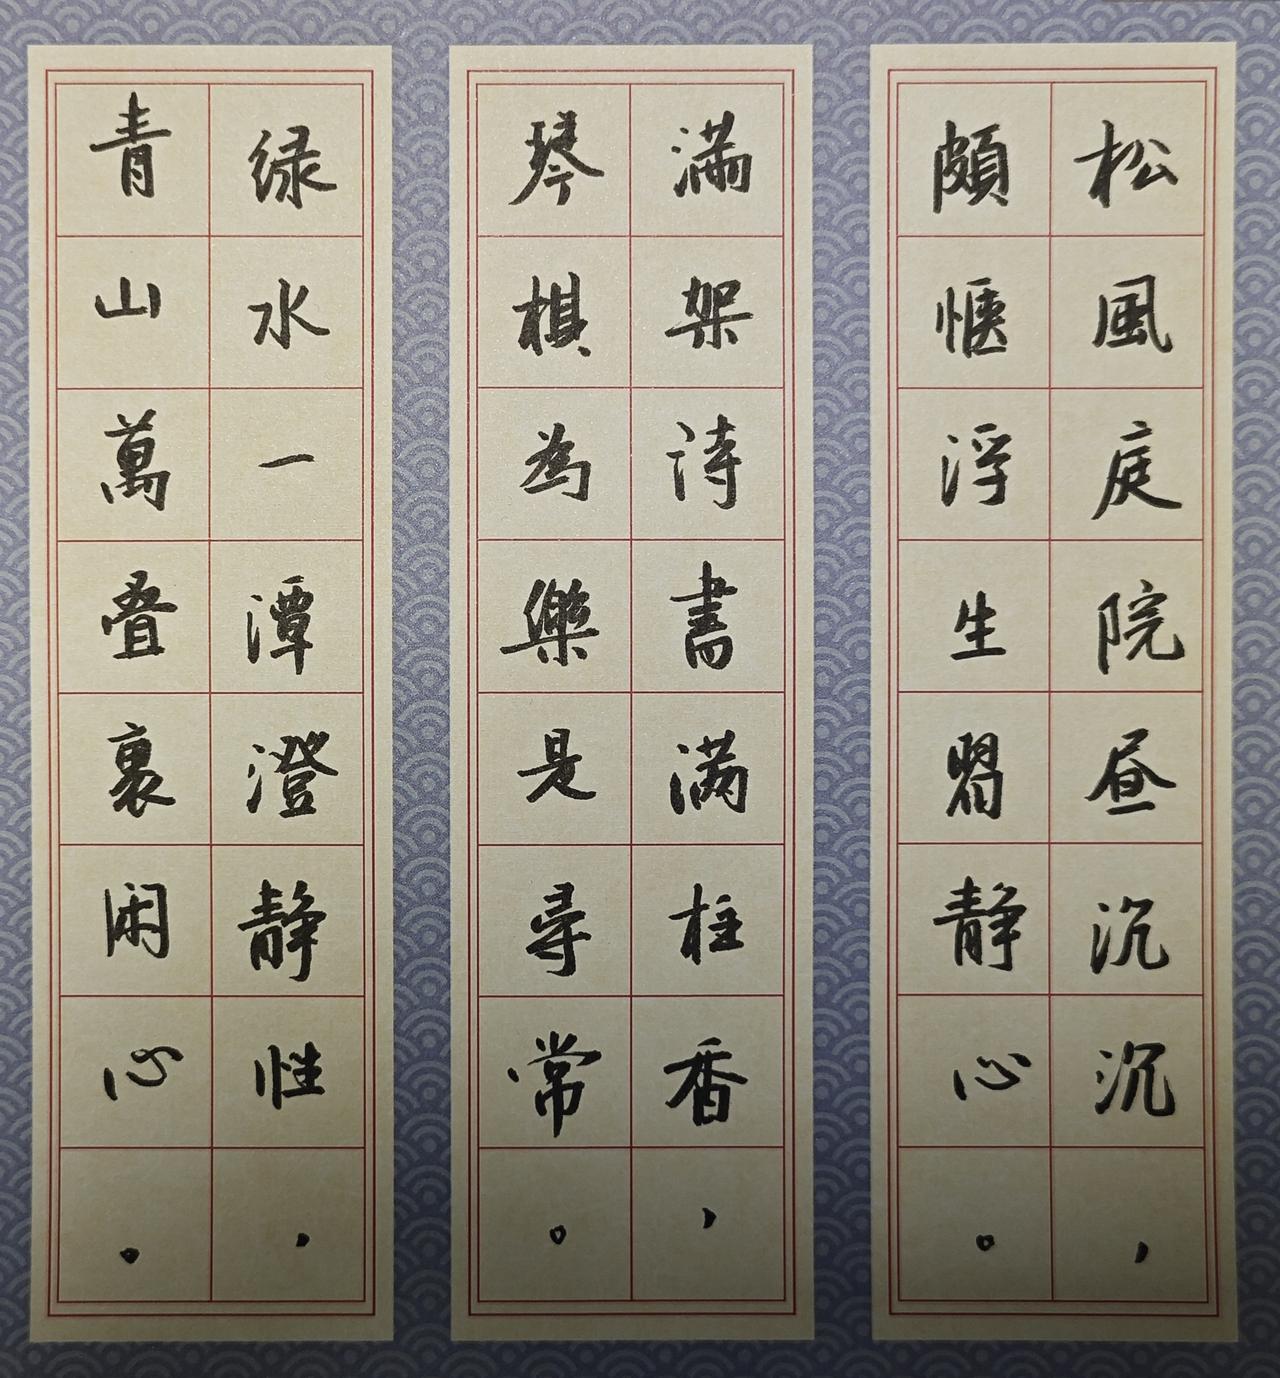 松風庭院昼沉沉，
頗惬浮生習静心。
满架诗書满柱香，
琴棋為樂是尋常。
绿水一潭澄静性，
青山萬叠裏闲心。